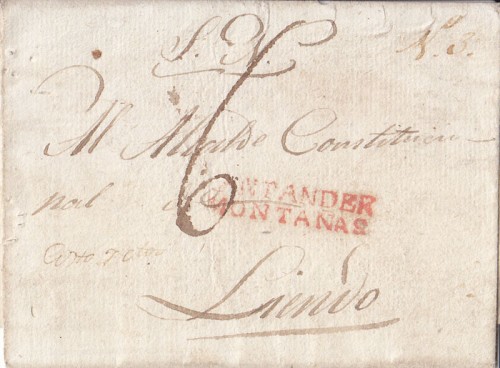 S. N.
Nº 3.
6
Al Alcalde Constitucio
nal de
SANTANDER
MONTAÑAS
Liendo